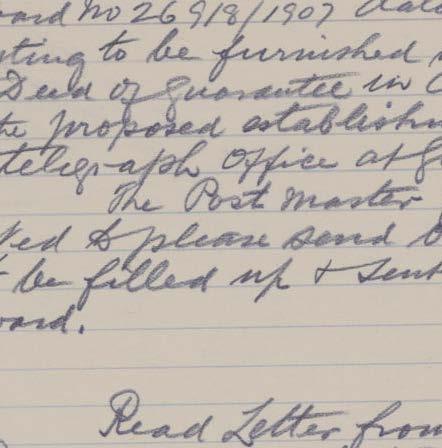 oard No 26918/1907 date
sting to be furnished
Deed of guarantee in
he proposed establishm
telegraph Office at G
The Post Master
ted to please send
be filled up & sent
oard.
Read Letter from